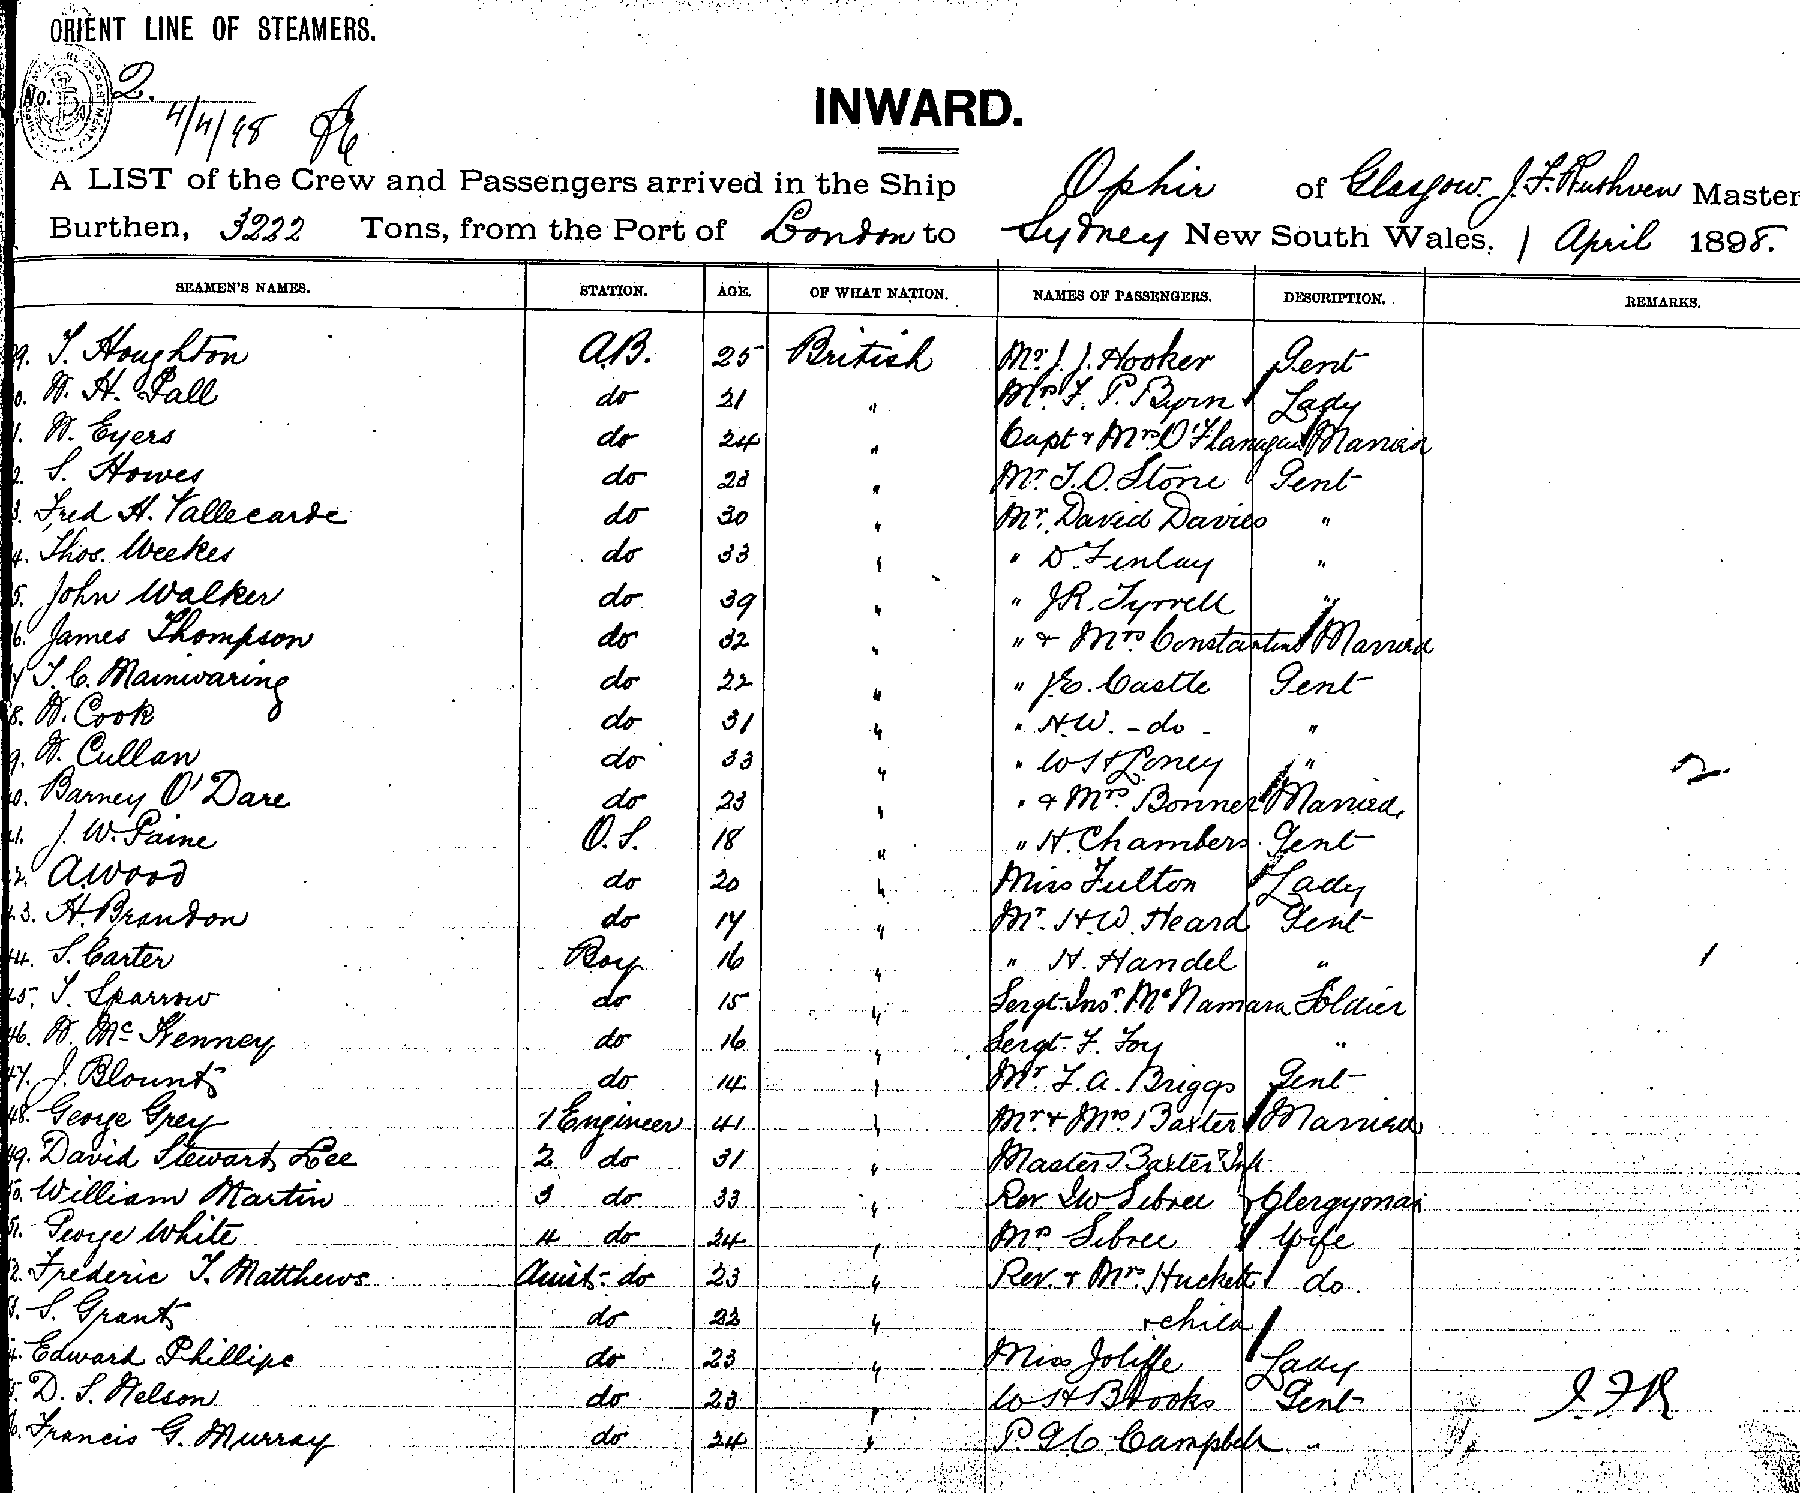 ORIENT LINE OF STEAMERS.
No. 2.
4/4/98
INWARD.
A LIST of the Crew and Passengers arrived in the Ship Ophir of Glasgow. J. F. Ruthven Master
Burthen, 3222 Tons, from the Port of London to Sydney New South Wales, 1 April 1898.
SEAMEN'S NAMES. STATION. AGE. OF WHAT NATION. NAMES OF PASSENGERS. DESCRIPTION. REMARKS.
9. T. Houghton A.B. 25 British Mr. J. J. Hooker Gent
0. W. H. Pall do 21 " Mrs F. P. Byrn Lady
1. W. Eyers do 24 " Capt & Mrs O'Flanagan Married
2. S. Howes do 23 " Mr. T. O. Stone Gent
3. Fred H. Vallecarde do 30 " Mr. David Davies "
4. Thos. Weekes do 33 " " D. Finlay "
5. John Walker do 39 " " J R. Tyrrell "
6. James Thompson do 32 " " & Mrs Constantine Married
7 T. C. Mainwaring do 22 " " J. E. Castle Gent
8. W. Cook do 31 " " H. W. - do - "
9. W. Cullan do 33 " " W H Loney " 2.
0. Barney O'Dare do 23 " " & Mrs Bonner Married
41. J. W. Paine O.S. 18 " " H. Chambers Gent
2. A Wood do 20 " Miss Fulton Lady
43. H. Brandon do 17 " Mr. H. W. Heard Gent
44. S. Carter Boy 16 " " H. Handel " 1
45. T. Sparrow do 15 " Sergt. Insr. McNamara Soldier
46. W. McKenney do 16 " Sergt. F. Foy "
47. J. Blount do 14 " Mr F. A. Briggs Gent
48. George Grey 1 Engineer 41 " Mr & Mrs Baxter Married
49. David Stewart Lee 2 do 31 " Master Baxter Inf.
50. William Martin 3 do 33 " Rev Sibree Clergyman
51. George White 4 do 24 " Mrs Sibree Wife
2. Frederic T. Matthews Assist. do 23 " Rev. & Mrs. Huckett do.
3. S. Grant do 22 " & child
4. Edward Phillips do 23 " Miss Joliffe Lady
5. D. S. Nelson do 23 " W H Brooks Gent J. F. R
6. Francis G. Murray do 24 " Campbell "